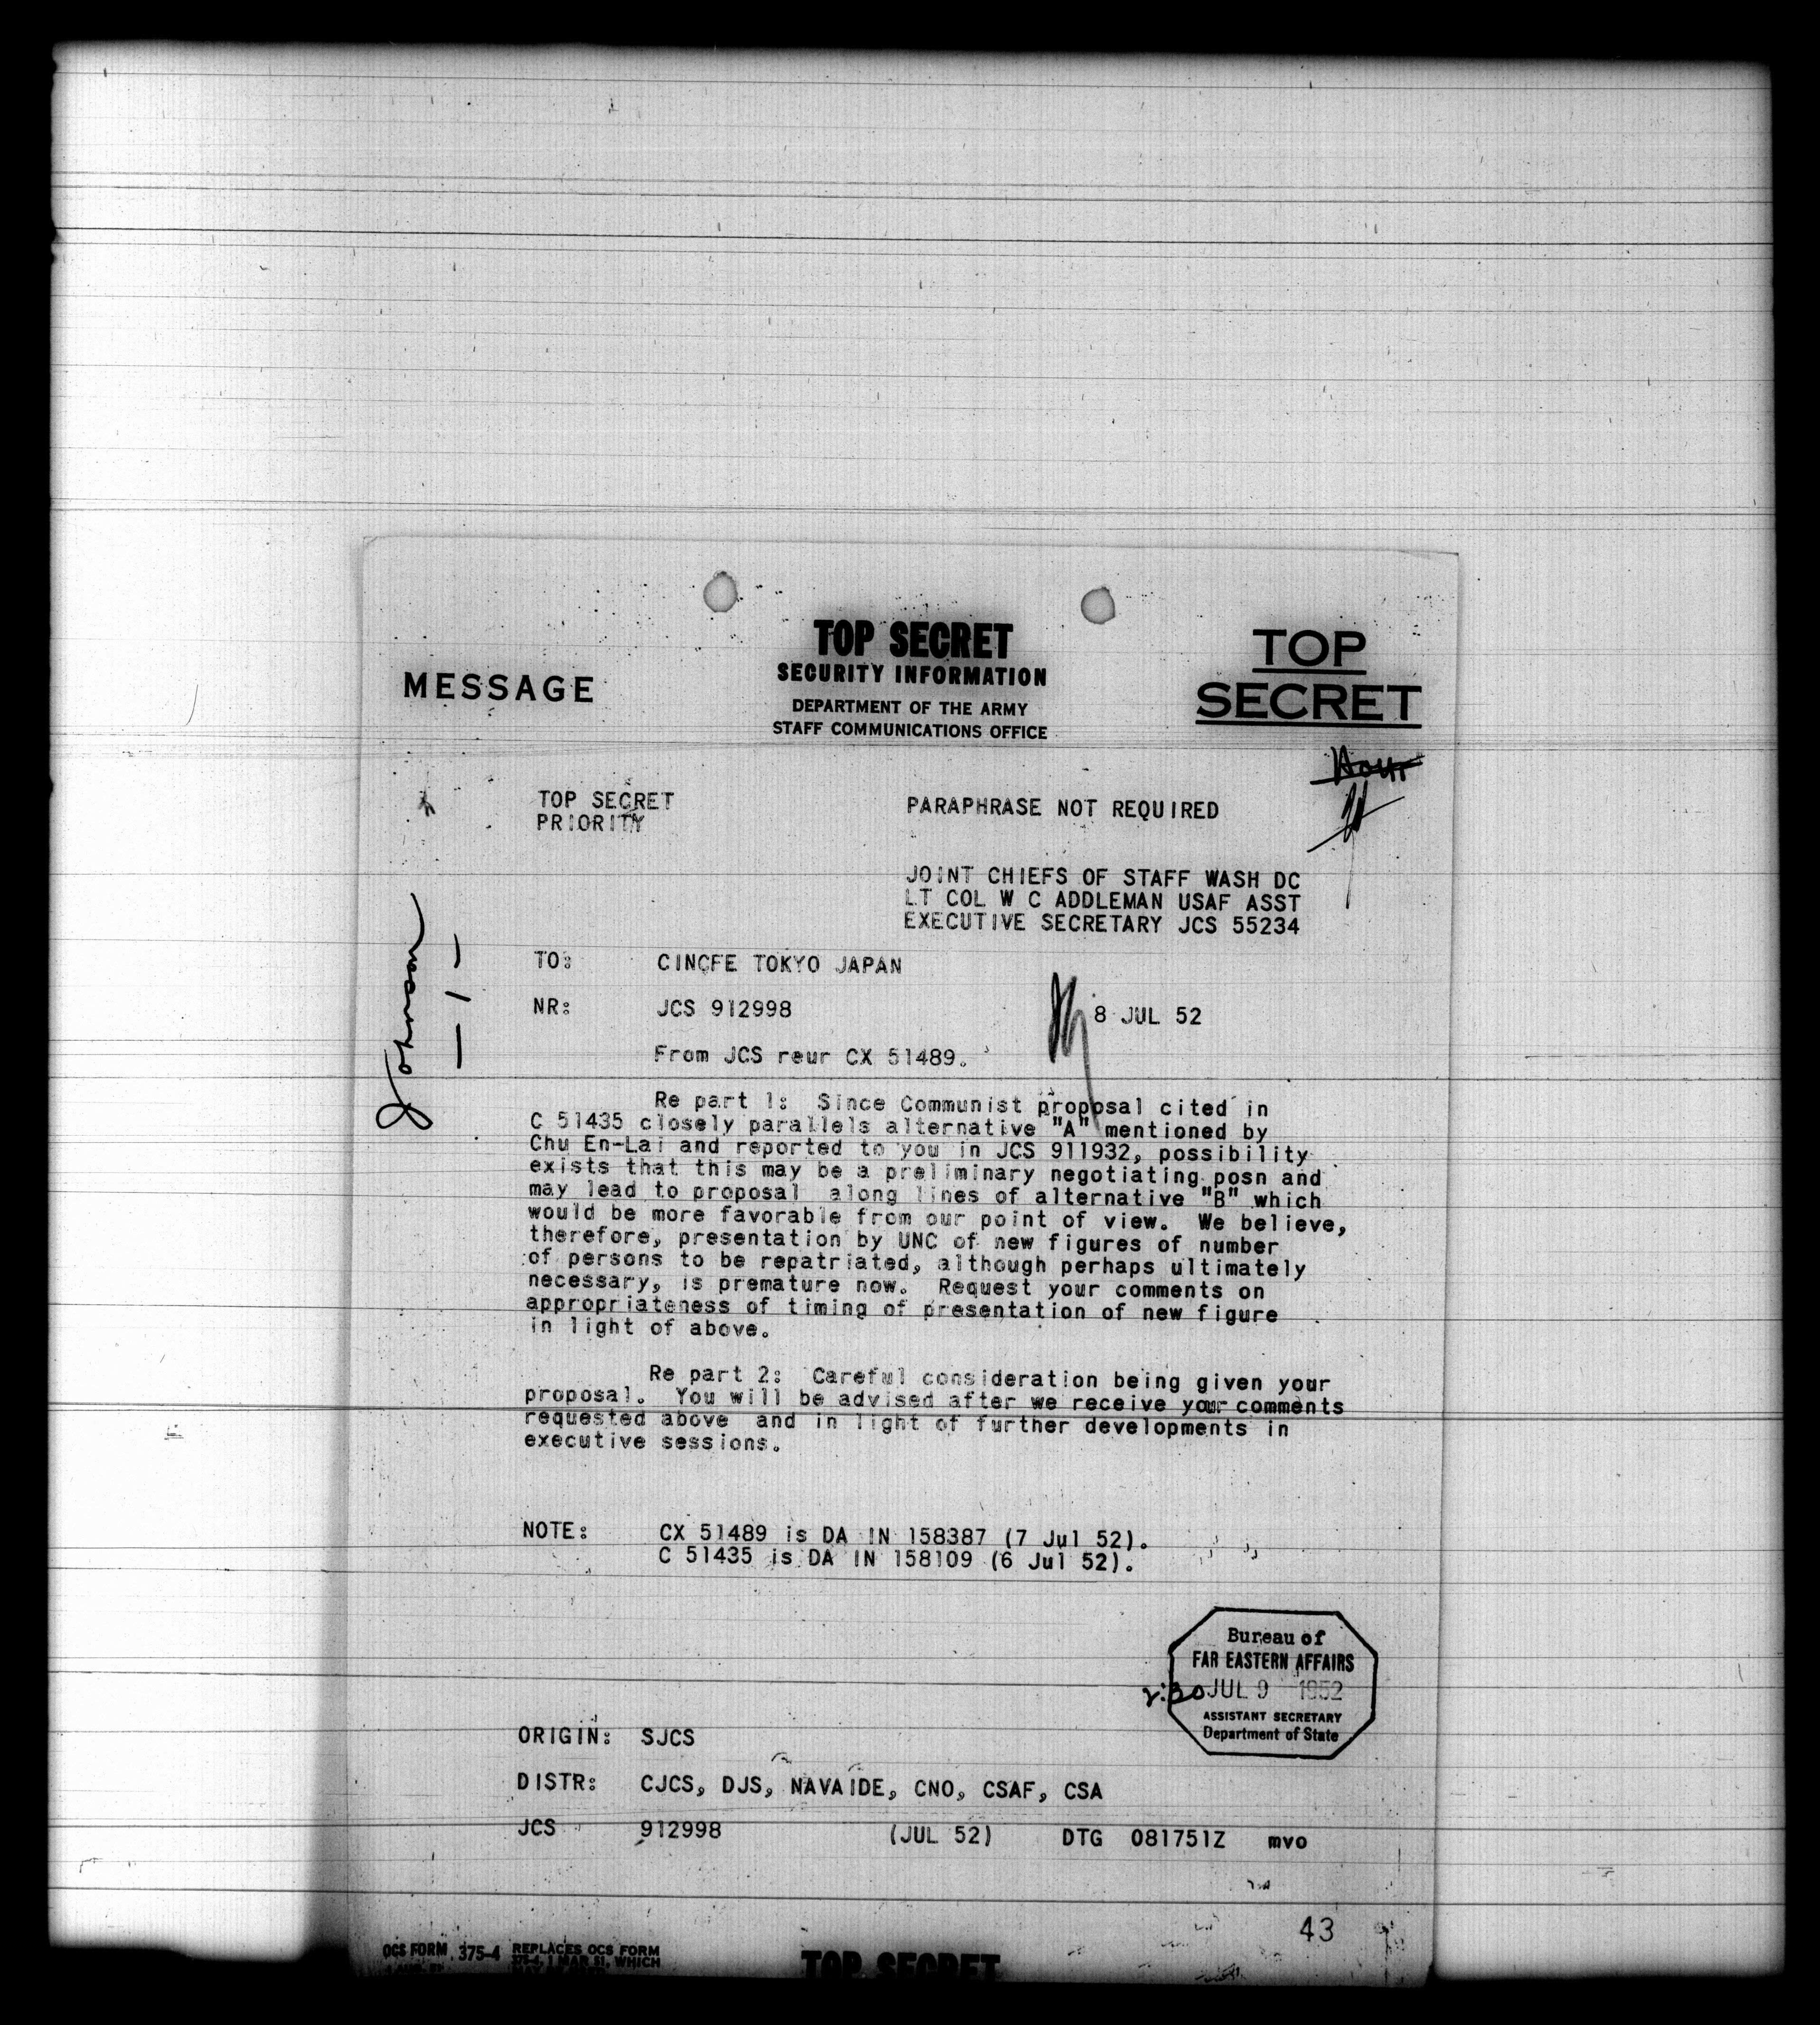 TOP SECRET
SECURITY INFORMATION
DEPARTMENT OF THE ARMY
STAFF COMMUNICATIONS OFFICE
MESSAGE
TOP
SECRET
TOP SECRET
PRIORITY
PARAPHRASE NOT REQUIRED
JOINT CHIEFS OF STAFF WASH DC
LT COL W C ADDLEMAN USAF ASST
EXECUTIVE SECRETARY JCS 55234
Johnson
TO: CINCFE TOKYO JAPAN
NR: JCS 912998
8 JUL 52
From JCS reur CX 51489.
Re part 1: Since Communist proposal cited in
C 51435 closely parallels alternative "A" mentioned by
Chu En-Lai and reported to you in JCS 911932, possibility
exists that this may be a preliminary negotiating posn and
may lead to proposal along lines of alternative "B" which
would be more favorable from our point of view. We believe,
therefore, presentation by UNC of new figures of number
of persons to be repatriated, although perhaps ultimately
necessary, is premature now. Request your comments on
appropriateness of timing of presentation of new figure
in light of above.
Re part 2: Careful consideration being given your
proposal. You will be advised after we receive your comments
requested above and in light of further developments in
executive sessions.
NOTE: CX 51489 is DA IN 158387 (7 Jul 52).
C 51435 is DA IN 158109 (6 Jul 52).
Bureau of
FAR EASTERN AFFAIRS
2:30 JUL 9 1952
ASSISTANT SECRETARY
Department of State
ORIGIN: SJCS
DISTR: CJCS, DJS, NAVAIDE, CNO, CSAF, CSA
JCS 912998 (JUL 52) DTG 081751Z mvo
43
OCS FORM 375-4 REPLACES OCS FORM
375-4, 1 MAR 51, WHICH
TOP SECRET